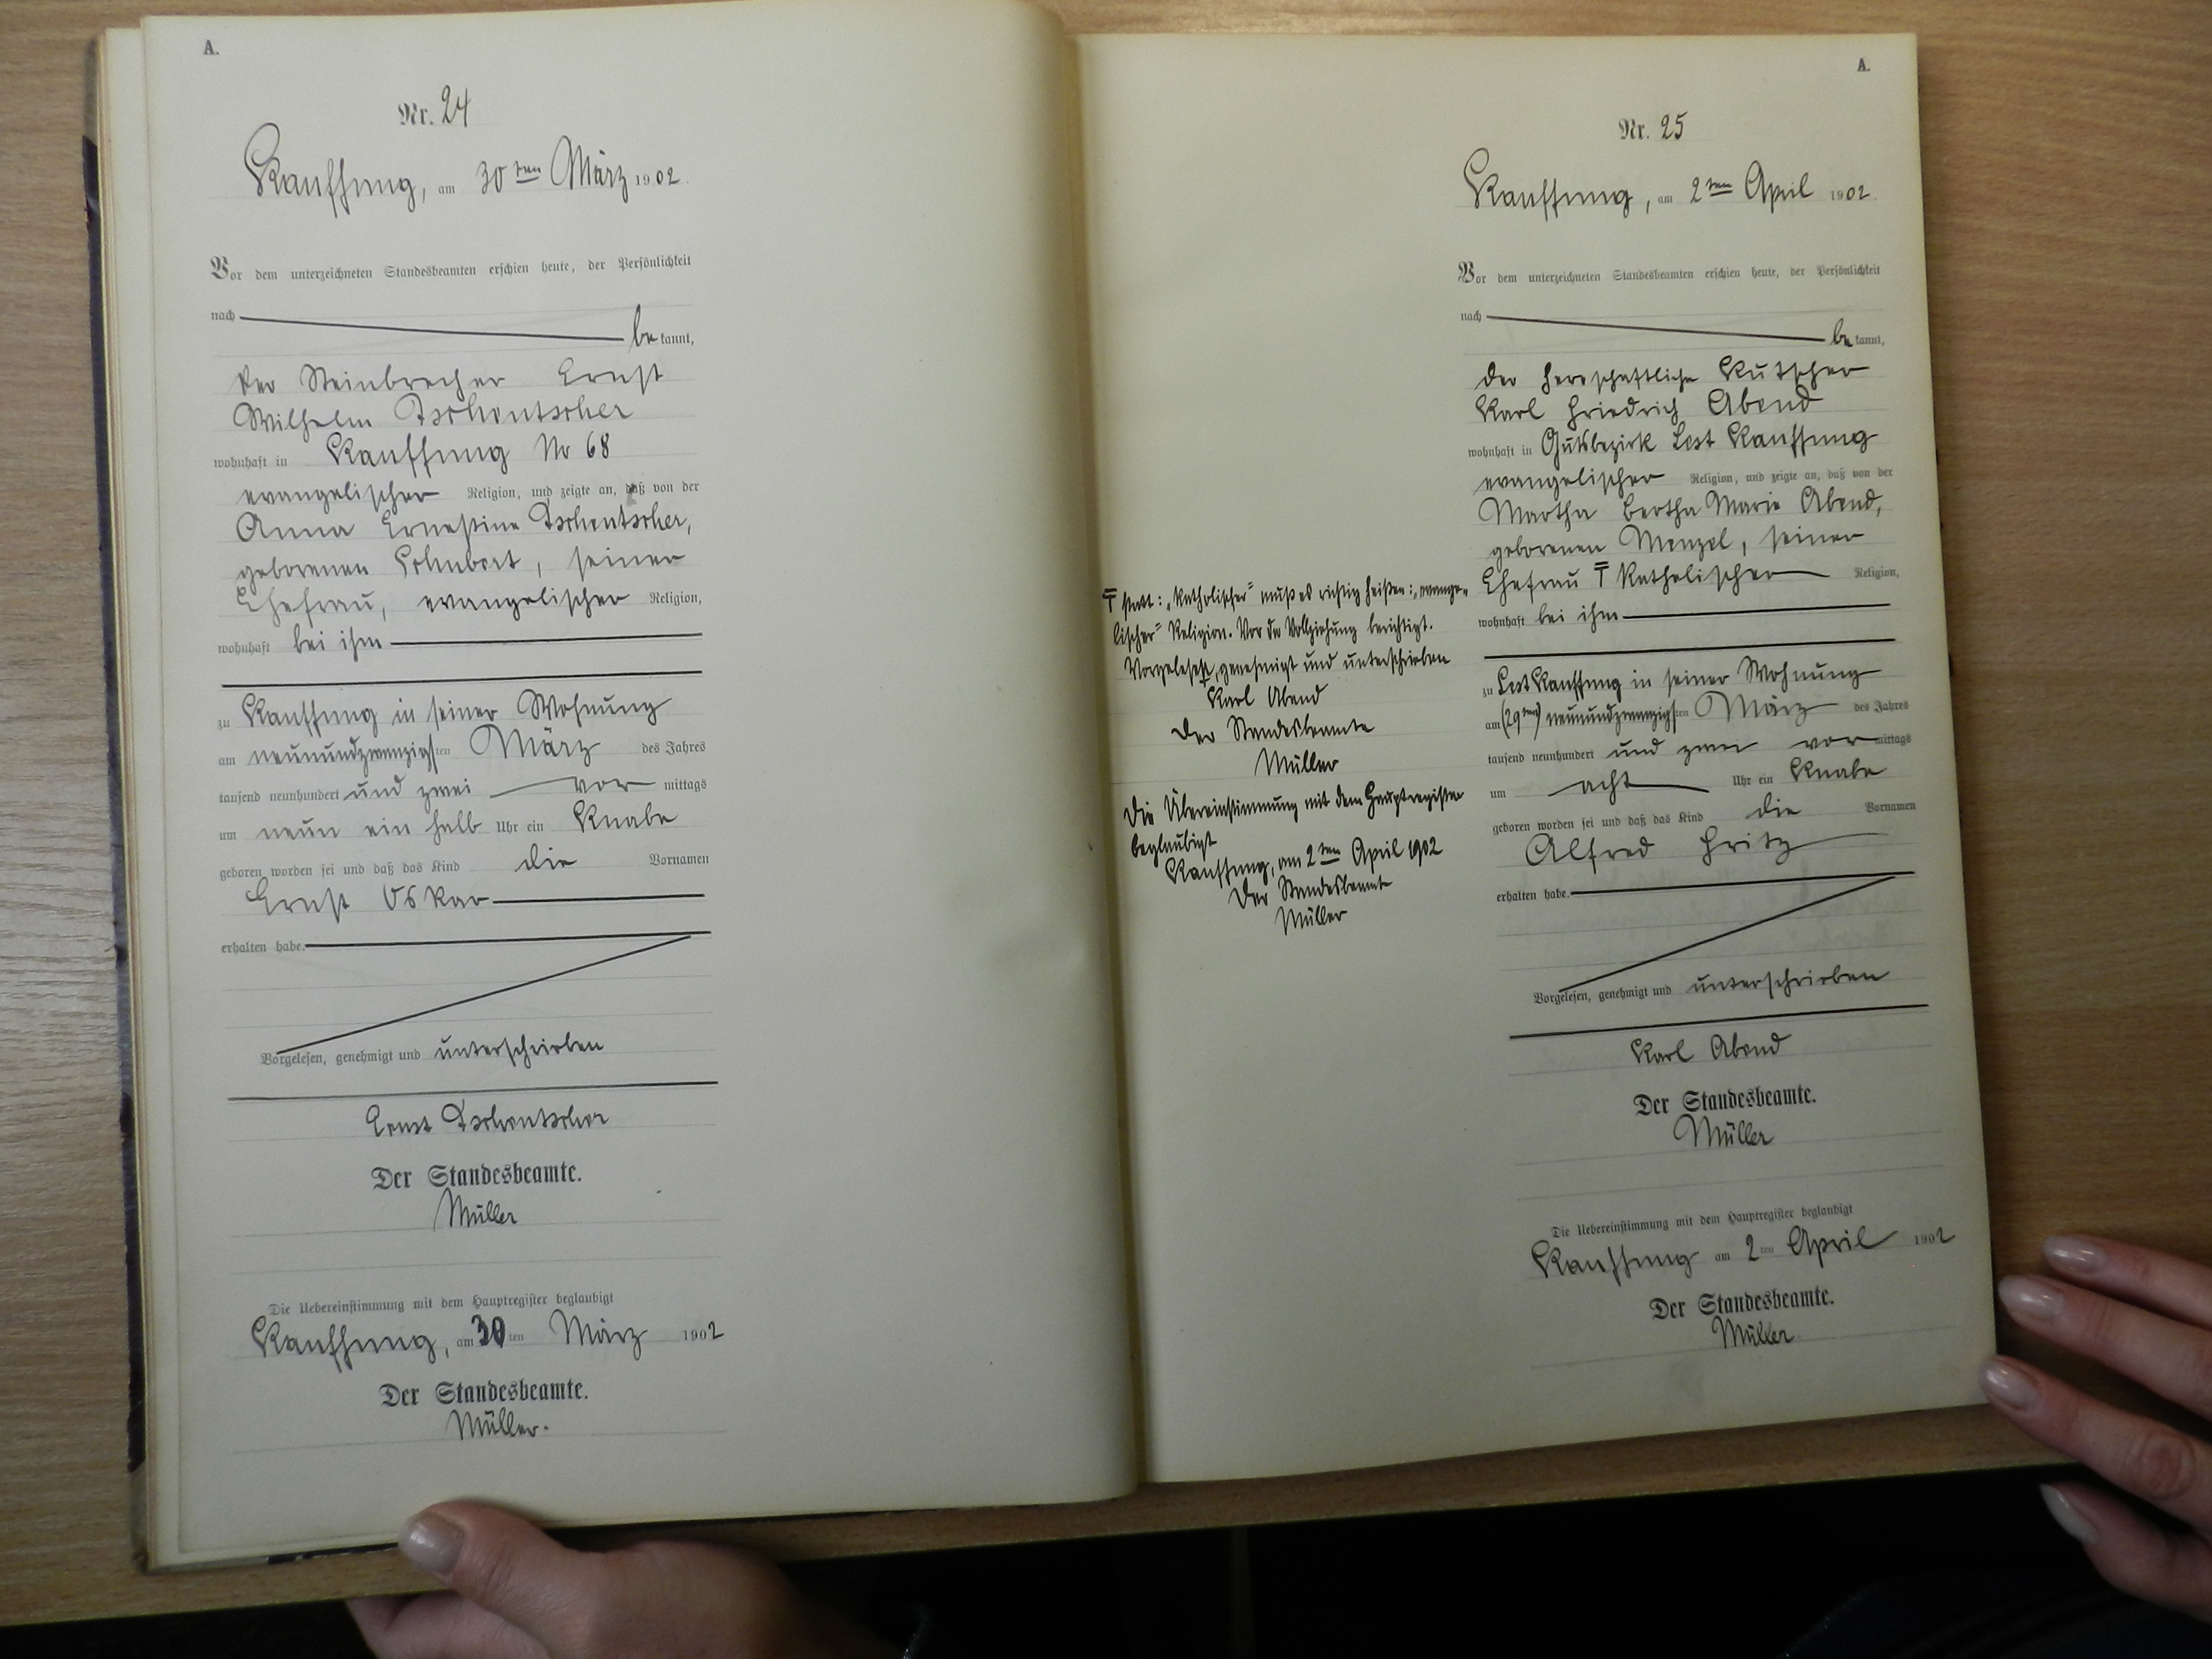 A.
Nr. 24
Kauffung, am 30ten März 1902.
Vor dem unterzeichneten Standesbeamten erschien heute, der Persönlichkeit
nach
be kannt,
der Steinbrecher Ernst
Wilhelm Tschentscher
wohnhaft in Kauffung No 68
evangelischer Religion, und zeigte an, daß von der
Anna Ernestine Tschentscher,
geborenen Schubert, seiner
Ehefrau, evangelischer Religion,
wohnhaft bei ihm
zu Kauffung in seiner Wohnung
am neunundzwanzigsten März des Jahres
tausend neunhundert und zwei vor mittags
um neun ein halb Uhr ein Knabe
geboren worden sei und daß das Kind die Vornamen
Ernst Oskar
erhalten habe.
Vorgelesen, genehmigt und unterschrieben
Ernst Tschentscher
Der Standesbeamte.
Müller
Die Uebereinstimmung mit dem Hauptregister beglaubigt
Kauffung, am 30ten März 1902
Der Standesbeamte.
Müller.
A.
Nr. 25
Kauffung, am 2ten April 1902.
Vor dem unterzeichneten Standesbeamten erschien heute, der Persönlichkeit
nach
be kannt,
der herrschaftliche Kutscher
Karl Friedrich Abend
wohnhaft in Gutsbezirk Lest Kauffung
evangelischer Religion, und zeigte an, daß von der
Martha Bertha Marie Abend,
geborenen Menzel, seiner
Ehefrau ₸ Katholischer Religion,
wohnhaft bei ihm
zu Lest Kauffung in seiner Wohnung
am (29ten) neunundzwanzigsten März des Jahres
tausend neunhundert und zwei vor mittags
um acht Uhr ein Knabe
geboren worden sei und daß das Kind die Vornamen
Alfred Fritz
erhalten habe.
Vorgelesen, genehmigt und unterschrieben
Karl Abend
Der Standesbeamte.
Müller
Die Uebereinstimmung mit dem Hauptregister beglaubigt
Kauffung am 2ten April 1902
Der Standesbeamte.
Müller
₸ statt: „Katholischer" muß es richtig heißen: „evange-
lischer" Religion. Vor der Vollziehung berichtigt.
Vorgelesen, genehmigt und unterschrieben
Karl Abend
Der Standesbeamte
Müller
Die Übereinstimmung mit dem Hauptregister
beglaubigt
Kauffung, am 2ten April 1902
Der Standesbeamte
Müller